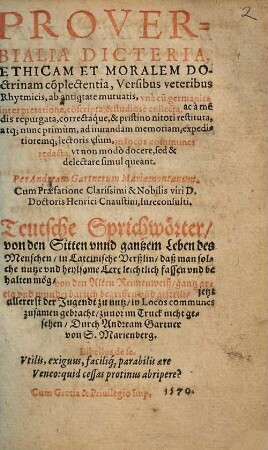 2
PROVER-
BIALIA DICTERIA,
ETHICAM ET MORALEM DO-
ctrinam cõplectentia, Versibus veteribus
Rhytmicis, ab antiqtate mutuatis, vnà cũ germanica
interpretatione, cõscripta, & studiose collecta, ac à mẽ
dis repurgata, correctáque, & pristino nitori restituta,
atq; nunc primum, ad iuuandam memoriam, expedi-
tioremq; lectoris vsum, in locos communes
redacta, vt non modo docere, sed &
delectare simul queant.
Per Andream Gartnerum Mariaemontanum.
Cum Præfatione Clarissimi & Nobilis viri D.
Doctoris Henrici Cnaustini, Iureconsulti.
Teutsche Sprichwörter/
von den Sitten vnnd gantzem Leben des
Menschen / in Lateinische Verßlin / daß man sol-
che nutze vnd heylsame Lere leichtlich fassen vnd be
halten mög / von den Alten Reimenweiß / gantz
vnd
jetzt
allererst der Jugendt zu nutz / in Locos communes
zusamen gebracht / zuuor im Truck nicht ge-
sehen / Durch Andream Gartner
von S. Marienberg.
Libellus de se.
Vtilis, exiguus, facilisq; parabilis ære
Veneo: quid cessas protinus abripere?
Cum Gratia & Priuilegio Imp. 1570.